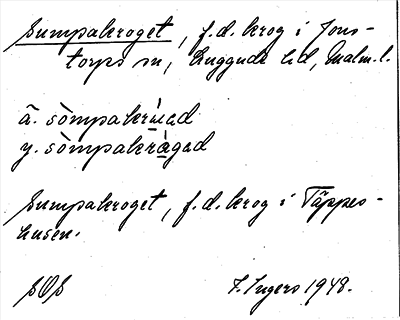 Sumpakroget, f.d. krog i Jons-
torps sn, Luggude hd, Malm. l.
ä. sòmpakrùad
y. sòmpakràgad
Sumpakroget, f.d. krog i Täppes-
husen.
SOS
I. Ingers 1948.